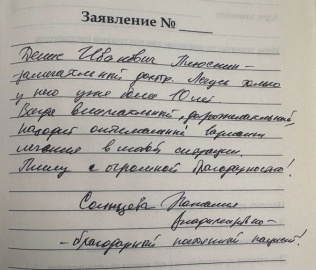 Заявление №
Денис Иванович Плюснин -
замечательный доктор. Лечусь только
у него уже более 10 лет.
Всегда внимательный, доброжелательный,
находит оптимальный вариант
лечения в любой ситуации.
Пишу с огромной благодарностью!
Солнцева Наталия
Владимировна -
- благодарный пациент!